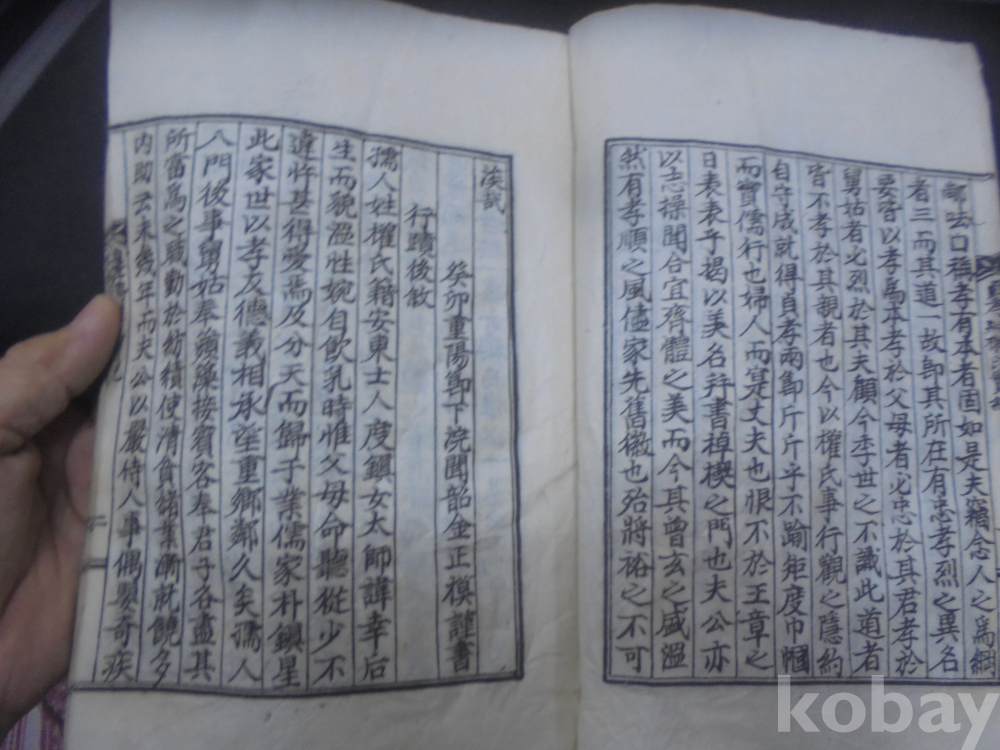 口稱孝有本者固如是夫竊念人之爲綱
者三而其道一故即其所在有忠孝烈之異名
要皆以孝爲本孝於父母者必忠於其君孝於
舅姑者必烈於其夫顧今季世之不識此道者
皆不孝於其親者也今以權氏事行觀之隱約
自守成就得貞孝兩節斤斤乎不踰矩度巾幗
而實儒行也婦人而寔丈夫也恨不於王章之
日表表乎揭以美名幷書棹楔之門也夫公亦
以志操聞合宜齊體之美而今其曾玄之盛溫
然有孝順之風儘家先舊徽也殆將裕之不可
涯哉
癸卯重陽節下浣聞韶金正模謹書
行蹟後敘
孺人姓權氏籍安東士人度鎭女太師諱幸后
生而貌溫性婉自飮乳時惟父母命聽從少不
違忤甚得愛焉及分天而歸于業儒家朴鎭星
此家世以孝友德義相承望重鄕鄰久矣孺人
入門後事舅姑奉蘋藻接賓客奉君子各盡其
所當爲之職勤於紡績使淸貧諸業漸就饒多
內助云未幾年而夫公以嚴侍人事偶嬰奇疾
kobay